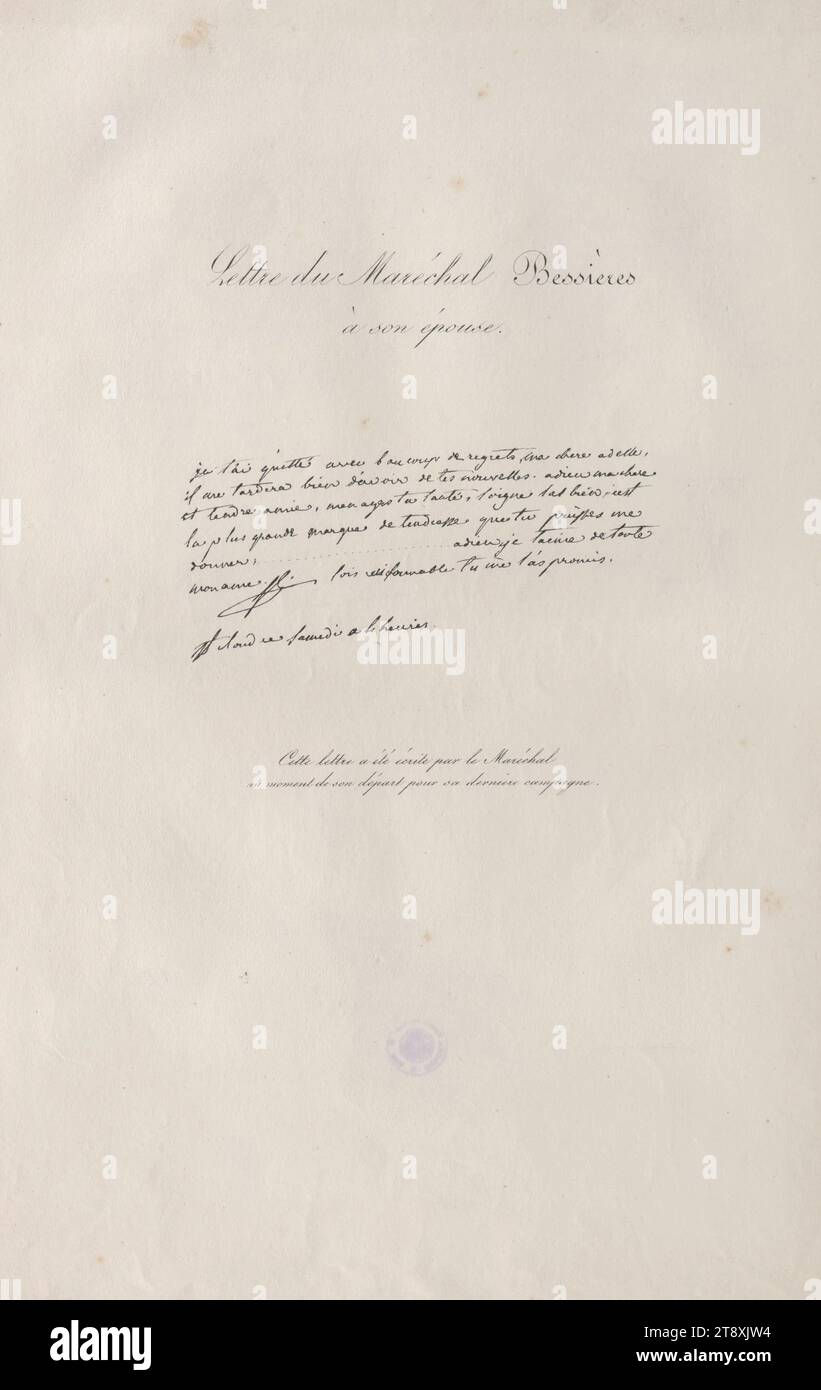 Lettre du Maréchal Bessières
à son épouse.
je t'ai quitté avec baucoup de regrets, ma chere adelle,
il me tardera bien d'avoir de tes nouvelles. adieu ma chere
et tendre amie, menages ta santé; soigne la bien; c'est
la plus grande marque de tendresse que tu puisses me
donner; adieu je t'aime de toute
mon ame. sois raisonnable tu me l'as promis.
samedi a heures.
Cette lettre a été écrite par le Maréchal
au moment de son départ pour sa dernière campagne.
alamy
Image ID: 2T8XJW4
www.alamy.com